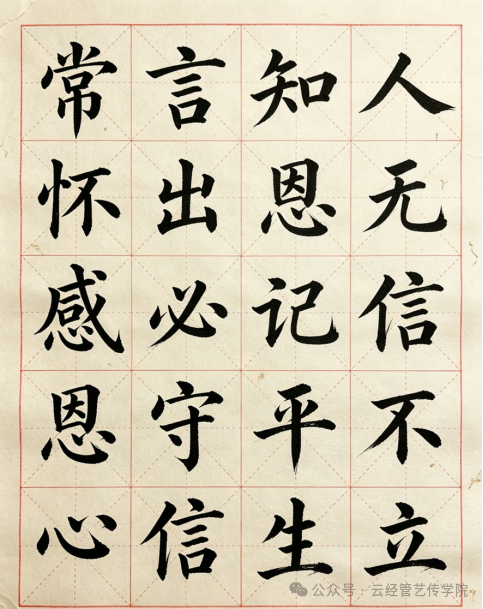 人无信不立
知恩记平生
言出必守信
常怀感恩心
公众号 · 云经管艺传学院